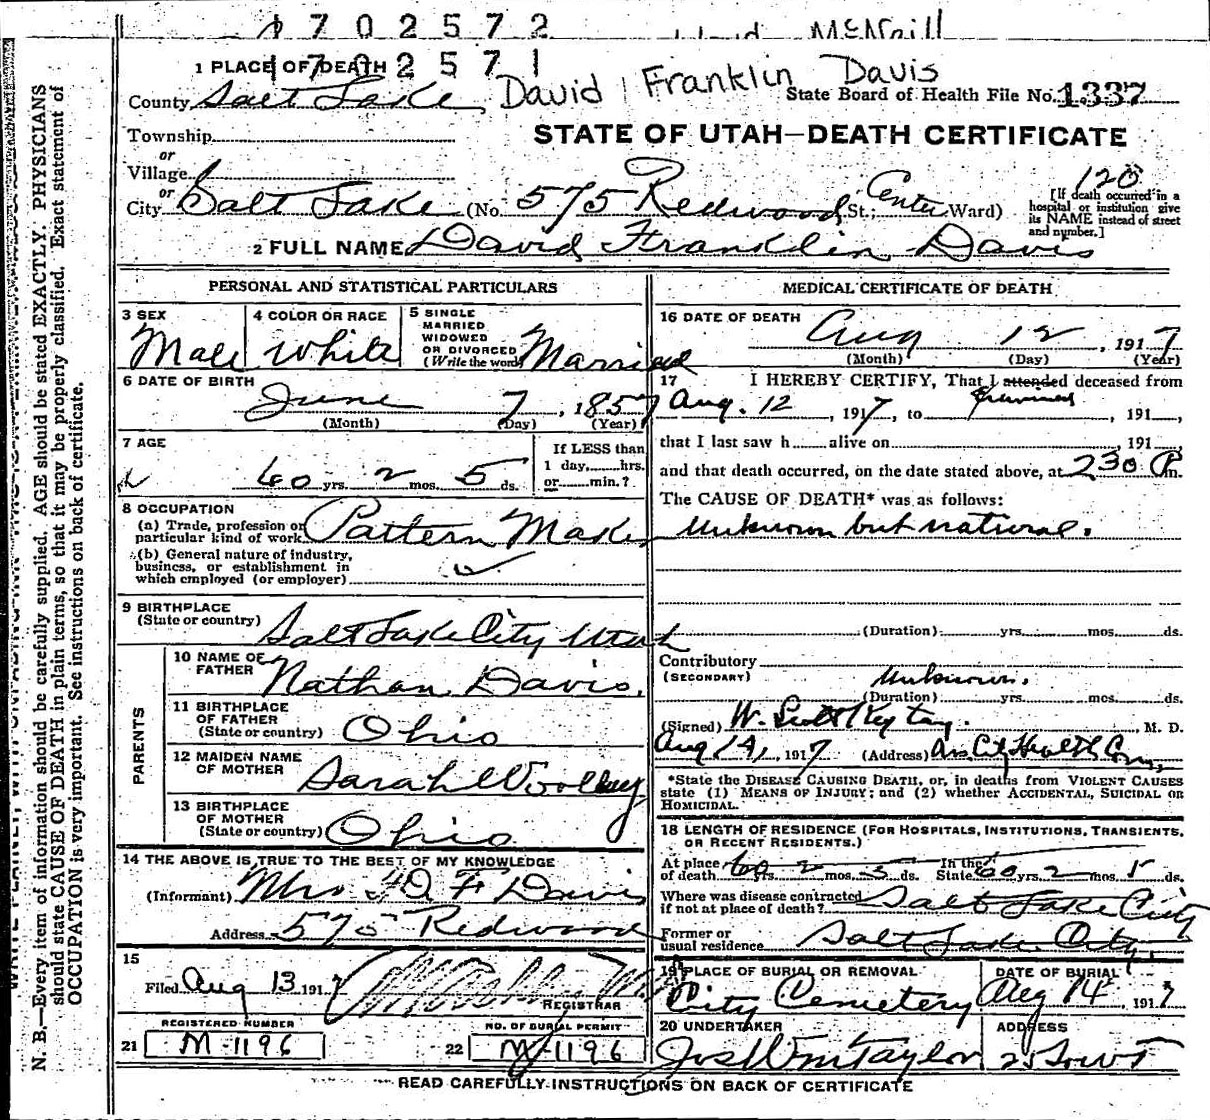 1702572
McNeill
1702571
1 PLACE OF DEATH
David Franklin Davis
County Salt Lake
State Board of Health File No. 1337
Township
STATE OF UTAH—DEATH CERTIFICATE
or
Village
or
120
City Salt Lake (No. 575 Redwood St.; Center Ward)
[If death occurred in a hospital or institution give its NAME instead of street and number.]
2 FULL NAME David Franklin Davis
PERSONAL AND STATISTICAL PARTICULARS
3 SEX Male
4 COLOR OR RACE White
5 SINGLE MARRIED WIDOWED OR DIVORCED (Write the word) Married
6 DATE OF BIRTH
June 7, 1857
(Month) (Day) (Year)
7 AGE
60 yrs. 2 mos. 5 ds.
If LESS than 1 day, hrs. or min.?
8 OCCUPATION
(a) Trade, profession or particular kind of work Pattern Maker
(b) General nature of industry, business, or establishment in which employed (or employer)
9 BIRTHPLACE
(State or country) Salt Lake City Utah
PARENTS
10 NAME OF FATHER Nathan Davis.
11 BIRTHPLACE OF FATHER (State or country) Ohio
12 MAIDEN NAME OF MOTHER Sarah Woolley
13 BIRTHPLACE OF MOTHER (State or country) Ohio
14 THE ABOVE IS TRUE TO THE BEST OF MY KNOWLEDGE
(Informant) Mrs D F Davis
Address 575 Redwood
15
Filed Aug 13 1917
REGISTRAR
REGISTERED NUMBER
21 M-1196
NO. OF BURIAL PERMIT
22 M-1196
MEDICAL CERTIFICATE OF DEATH
16 DATE OF DEATH
Aug 12, 1917
(Month) (Day) (Year)
17 I HEREBY CERTIFY, That I attended deceased from
Aug. 12, 1917, to , 191 ,
that I last saw h alive on , 191 ,
and that death occurred, on the date stated above, at 230 P m.
The CAUSE OF DEATH* was as follows:
Unknown but natural.
(Duration) yrs. mos. ds.
Contributory
(SECONDARY) Unknown.
(Duration) yrs. mos. ds.
(Signed) W. Scott Keyting. M. D.
Aug 14, 1917 (Address) Ass City Health Com,
*State the DISEASE CAUSING DEATH, or, in deaths from VIOLENT CAUSES
state (1) MEANS OF INJURY; and (2) whether ACCIDENTAL, SUICIDAL OR
HOMICIDAL.
18 LENGTH OF RESIDENCE (FOR HOSPITALS, INSTITUTIONS, TRANSIENTS,
OR RECENT RESIDENTS.)
At place of death 60 yrs. 2 mos. 5 ds. In the State 60 yrs. 2 mos. 5 ds.
Where was disease contracted if not at place of death? Salt Lake City
Former or usual residence Salt Lake City,
19 PLACE OF BURIAL OR REMOVAL
City Cemetery
DATE OF BURIAL
Aug 14, 1917
20 UNDERTAKER
Jos Wm Taylor
ADDRESS
25 So W T
READ CAREFULLY INSTRUCTIONS ON BACK OF CERTIFICATE
N. B.—Every item of information should be carefully supplied. AGE should be stated EXACTLY. PHYSICIANS
should state CAUSE OF DEATH in plain terms, so that it may be properly classified. Exact statement of
OCCUPATION is very important. See instructions on back of certificate.